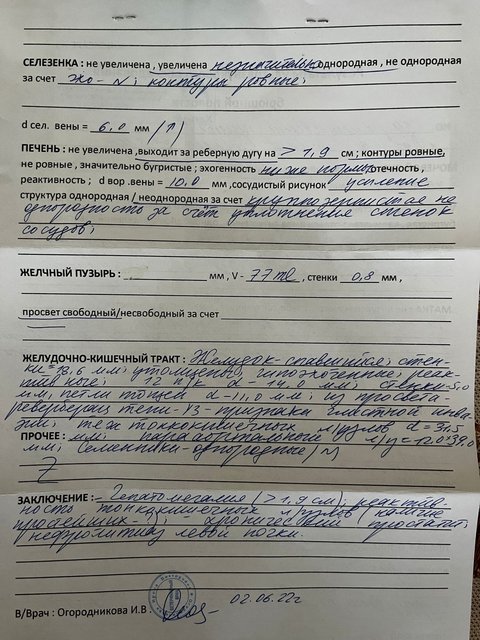 СЕЛЕЗЕНКА : не увеличена , увеличена незначительно однородная , не однородная
за счет эхо - N; контуры ровные;
d сел. вены = 6,0 мм /↑/
ПЕЧЕНЬ : не увеличена ,выходит за реберную дугу на > 1,9 см ; контуры ровные,
не ровные , значительно бугристые ; эхогенность ниже нормы, отечность ,
реактивность ; d вор .вены = 10,0 мм ,сосудистый рисунок усиление
структура однородная / неоднородная за счет крупнозернистая не
однородность за счёт уплотнение стенок
сосудов;
ЖЕЛЧНЫЙ ПУЗЫРЬ : мм , V - 77 ml , стенки 0,8 мм ,
просвет свободный/несвободный за счет
ЖЕЛУДОЧНО-КИШЕЧНЫЙ ТРАКТ : Желудок - спавшийся; стен-
ки = 13,6 мм; утолщены, гипоэхогенные; реак-
тивные; 12 п/к d - 14,0 мм; стенки - 5,0
мм, петли тощей d - 11,0 мм; из просвета -
ревербера тени - УЗ - признаки глистной инва-
зии; тонкокишечных л/узлов d = 31,5
ПРОЧЕЕ : мм; парааортальный л/у = 12,0*39,0
мм; Семенники - однородные / N
Z
ЗАКЛЮЧЕНИЕ : - Гепатомегалия (> 1,9 см); реактив
ность тонкокишечных л/узлов (наличие
простейших - ); - хронический простатит;
- нефролитиаз левой почки.
В/Врач : Огородникова И.В 02.06.22г